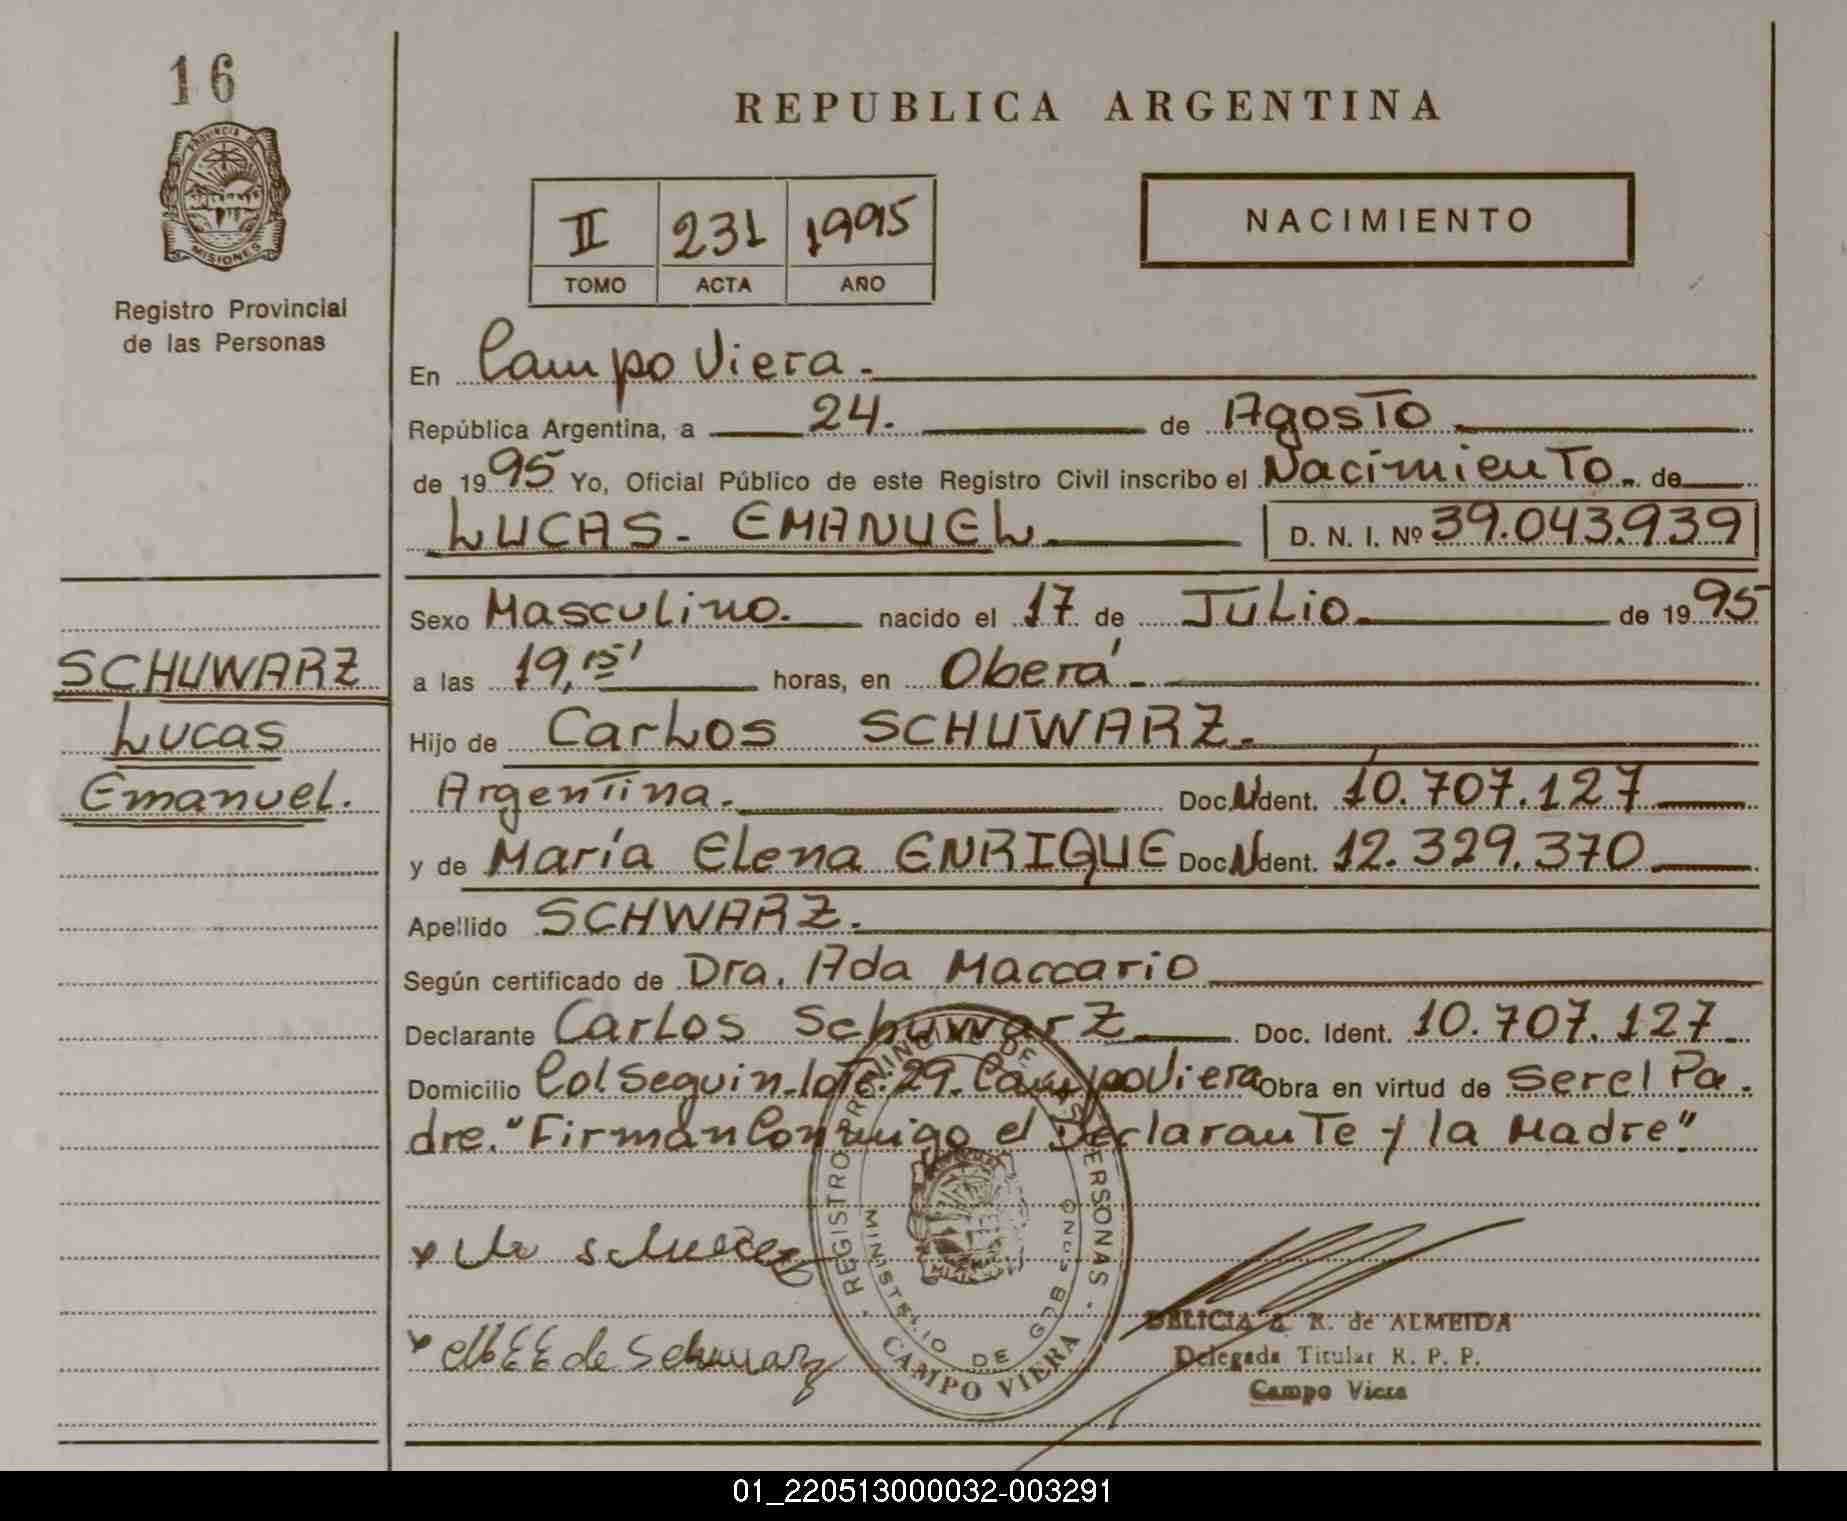 16
PROVINCIA DE
MISIONES
Registro Provincial
de las Personas
REPUBLICA ARGENTINA
II 231 1995
TOMO ACTA AÑO
NACIMIENTO
En Campo Viera.
República Argentina, a 24. de Agosto
de 1995 Yo, Oficial Público de este Registro Civil inscribo el Nacimiento. de
LUCAS - EMANUEL D. N. I. Nº 39.043.939
Sexo Masculino. nacido el 17 de Julio. de 1995
SCHUWARZ
Lucas
Emanuel.
a las 19,15' horas, en Oberá.
Hijo de Carlos SCHUWARZ.
Argentina. Doc. N Ident. 10.707.127
y de María Elena ENRIQUE Doc. N Ident. 12.329.370
Apellido SCHWARZ.
Según certificado de Dra. Ada Maccario
Declarante Carlos Schuwarz Doc. Ident. 10.707.127
Domicilio Col Seguin - lote: 29. Campo Viera Obra en virtud de ser el Pa-
dre. "Firman Conmigo el Declarante y la Madre"
REGISTRO PROVINCIAL DE LAS PERSONAS
MINISTERIO DE GOBIERNO
CAMPO VIERA
de Schuwarz
DELICIA R. de ALMEIDA
Delegada Titular R. P. P.
Campo Viera
01_220513000032-003291